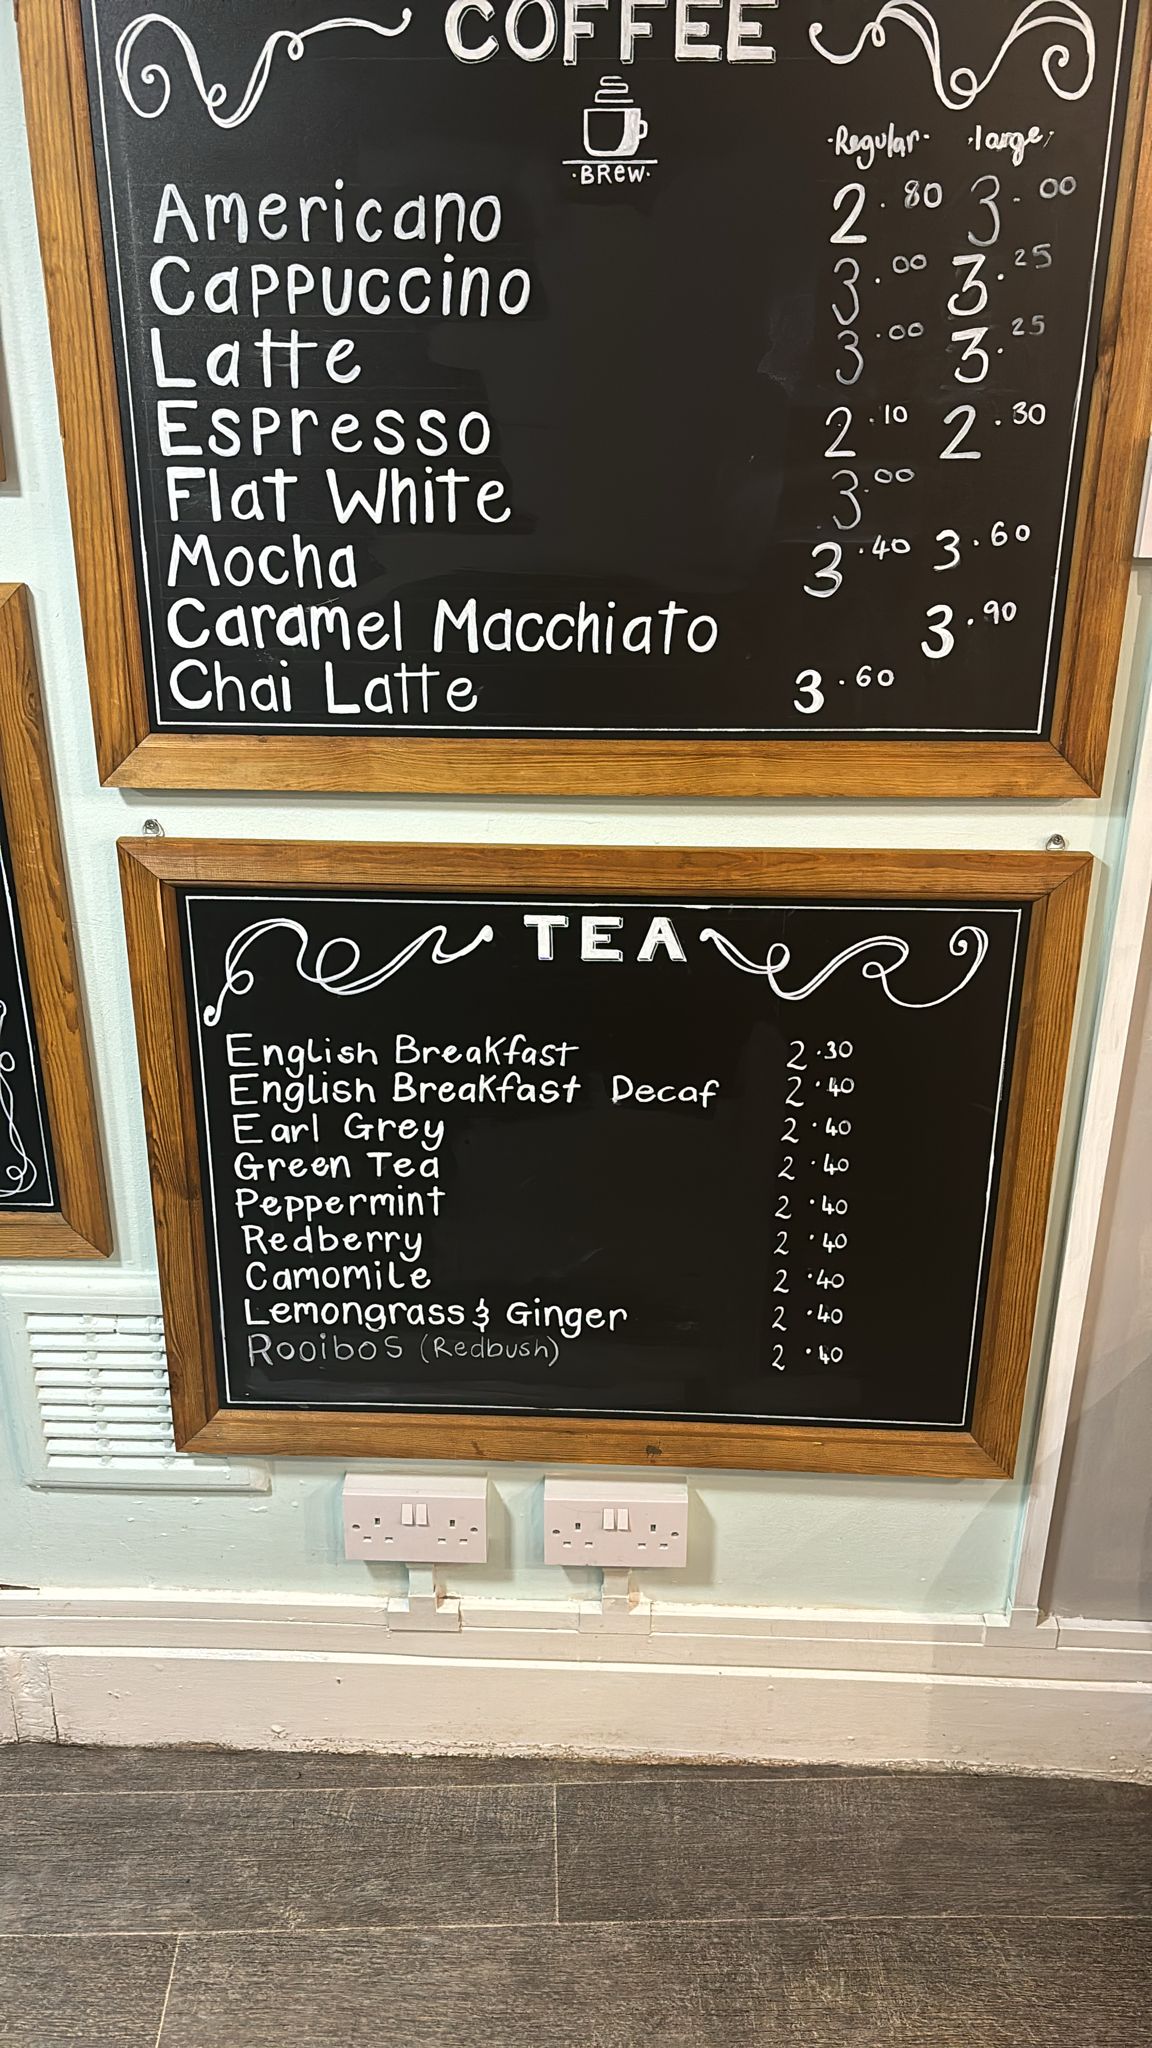 COFFEE
·BREW·
·Regular· ·large·
Americano 2.80 3.00
Cappuccino 3.00 3.25
Latte 3.00 3.25
Espresso 2.10 2.30
Flat White 3.00
Mocha 3.40 3.60
Caramel Macchiato 3.90
Chai Latte 3.60
TEA
English Breakfast 2.30
English Breakfast Decaf 2.40
Earl Grey 2.40
Green Tea 2.40
Peppermint 2.40
Redberry 2.40
Camomile 2.40
Lemongrass & Ginger 2.40
Rooibos (Redbush) 2.40